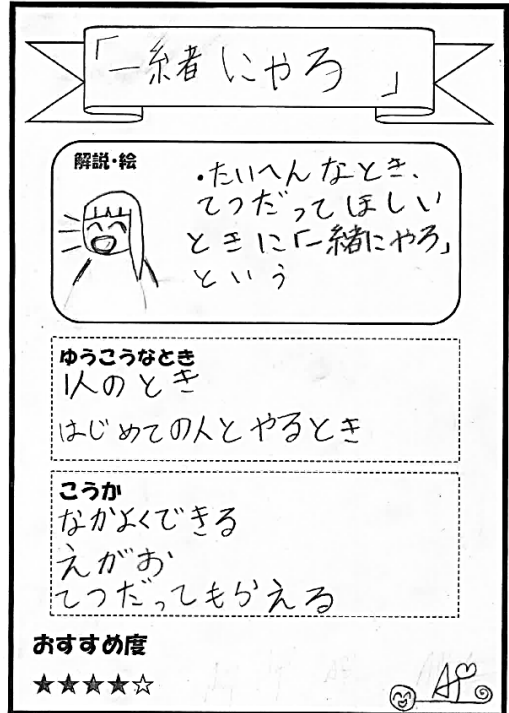 「一緒にやろ　」
解説・絵
・たいへんなとき、
てつだってほしい
ときに「一緒にやろ」
という
ゆうこうなとき
1人のとき
はじめての人とやるとき
こうか
なかよくできる
えがお
てつだってもらえる
おすすめ度
★★★★☆